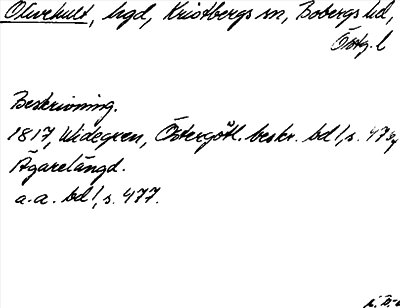 Olivehult, hgd, Kristbergs sn, Bobergs hd,
Östg. l
Beskrivning.
1817, Widegren, Östergötl. beskr. bd 1, s. 473
Ägarelängd.
a.a. bd 1, s. 477.